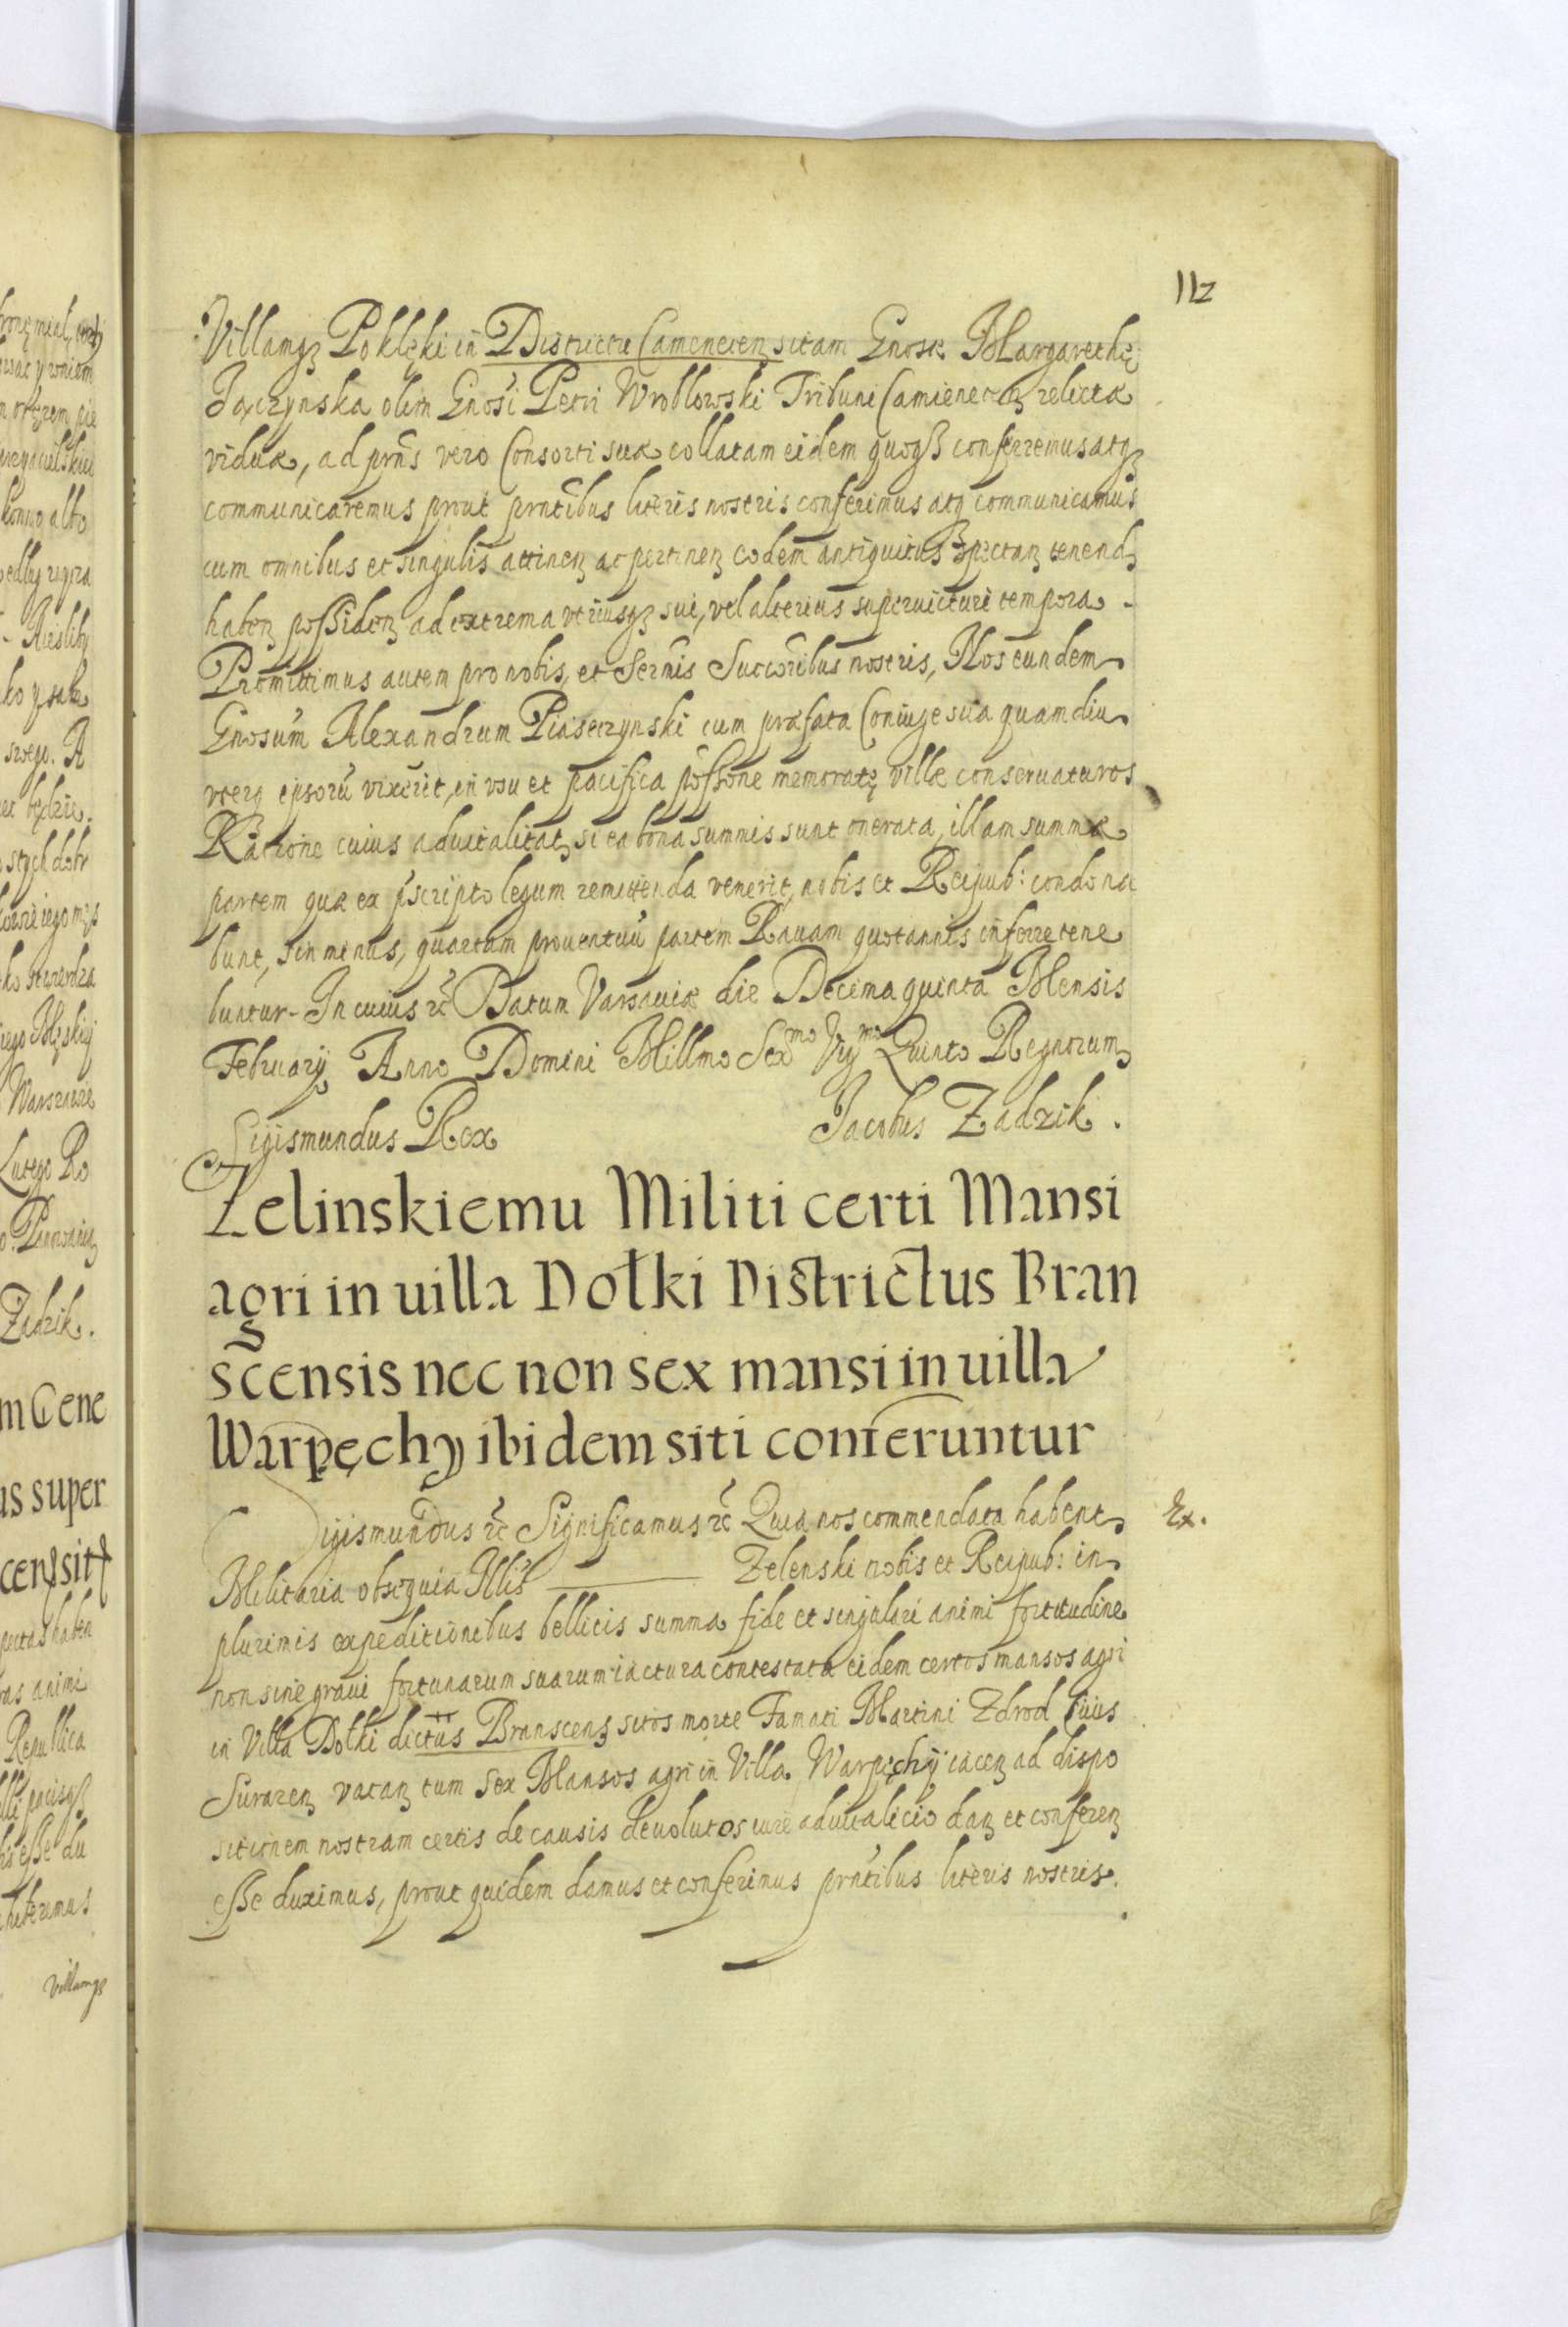 112
Villamqꝫ Poklęki in Districtu Camenecenꝫ sitam Gnose Margarethę
Jaxczynska olim Gnosi Petri Wroblowski Tribuni Camienecenꝫ relictæ
viduæ, ad prñs vero Consorti suæ collatam eidem quoqꝫ conferremus atqꝫ
communicaremus prout prñtibus literis nostris conferimus atqꝫ communicamus
cum omnibus et singulis attinenꝫ ac pertinenꝫ eodem antiquitus spectanꝫ tenendꝫ
habenꝫ possidenꝫ ad extrema vtriusqꝫ sui, vel alterius superuicturi tempora.
Promittimus autem pro nobis, et Sermis Succoribus nostris, Nos eundem
Gnosum Alexandrum Piaseczynski cum præfata Coniuge sua quamdiu
vterqꝫ ipsorũ vixerit, in vsu et pacifica possone memoratę ville conseruaturos
Ratione cuius aduitalitatꝫ si ea bona summis sunt onerata, illam summæ
partem quæ ex pscripto legum remittenda venerit, nobis et Reipub: condona
bunt, sin minus, quartam prouentuũ partem Rauam quotannis inferre tene
buntur. In cuius rc̃ Datum Varsauiæ die Decima quinta Mensis
February Anno Domini Millmo Sexmo Vigmo Quinto Regnorum
Sigismundus Rex Jacobus Zadzik.
Zelinskiemu Militi certi Mansi
agri in uilla Dołki Districtus Bran
scensis nec non sex mansi in uilla
Warpęchy ibidem siti conferuntur
Sigismundus rc̃ Significamus rc̃ Quia nos commendata habent Ex.
Militaria obsequia Illis ——— Zelenski nobis et Reipub: in
plurimis expeditionibus bellicis summa fide et singulari animi fortitudine
non sine graui fortunarum suarum iactura contestata eidem certos mansos agri
in Villa Dołki dictus Branscenꝫ sitos morte Famati Martini Zdrod Ciuis
Surazenꝫ vacanꝫ tum Sex Mansos agri in Villa Warpęchÿ iacenꝫ ad dispo
sitionem nostram certis de causis deuolutos iure aduitalicio danꝫ et conferenꝫ
esse duximus, prout quidem damus et conferimus prñtibus literis nostris.